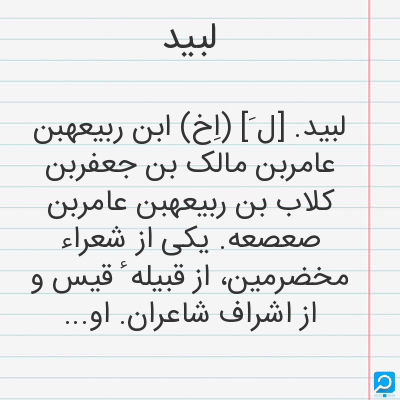 لبید
لبید. [ل َ] (اِخ) ابن ربیعهبن
عامربن مالک بن جعفربن
کلاب بن ربیعهبن عامربن
صعصعه. یکی از شعراء
مخضرمین، از قبیله ٔ قیس و
از اشراف شاعران. او...